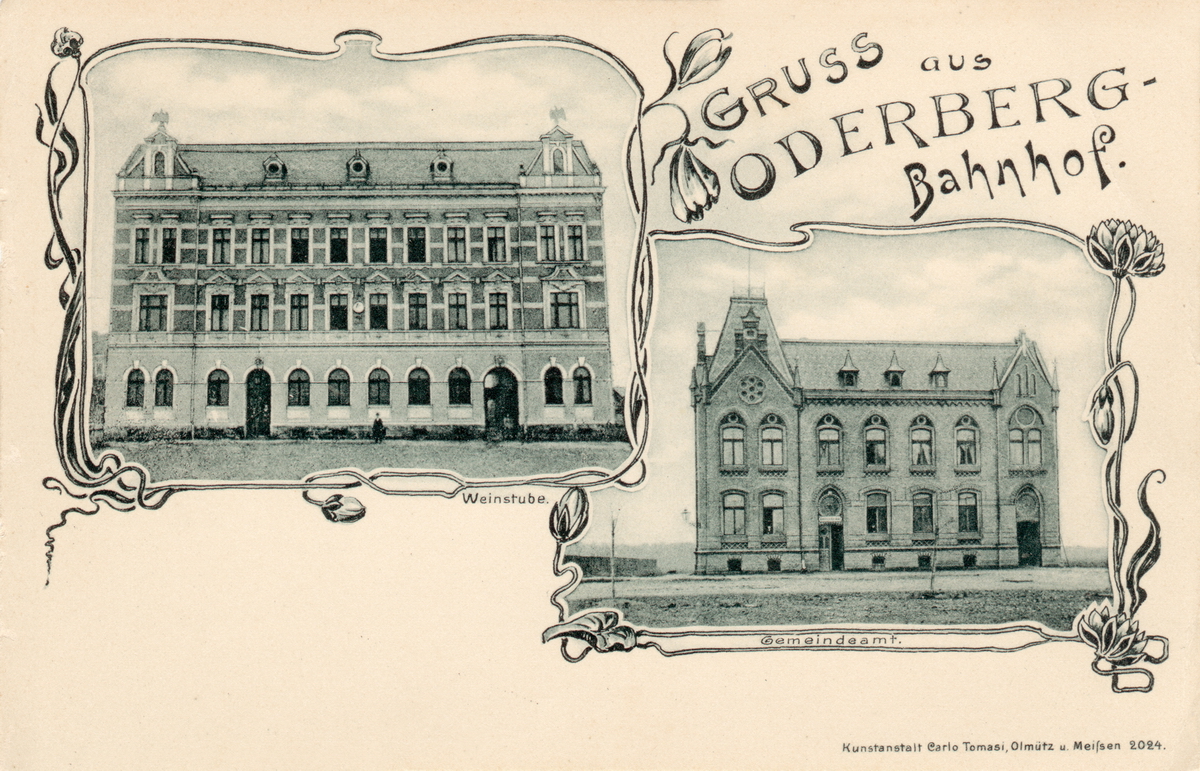 GRUSS aus
ODERBERG-
Bahnhof.
Weinstube.
Gemeindeamt.
Kunstanstalt Carlo Tomasi, Olmütz u. Meiſsen 2024.